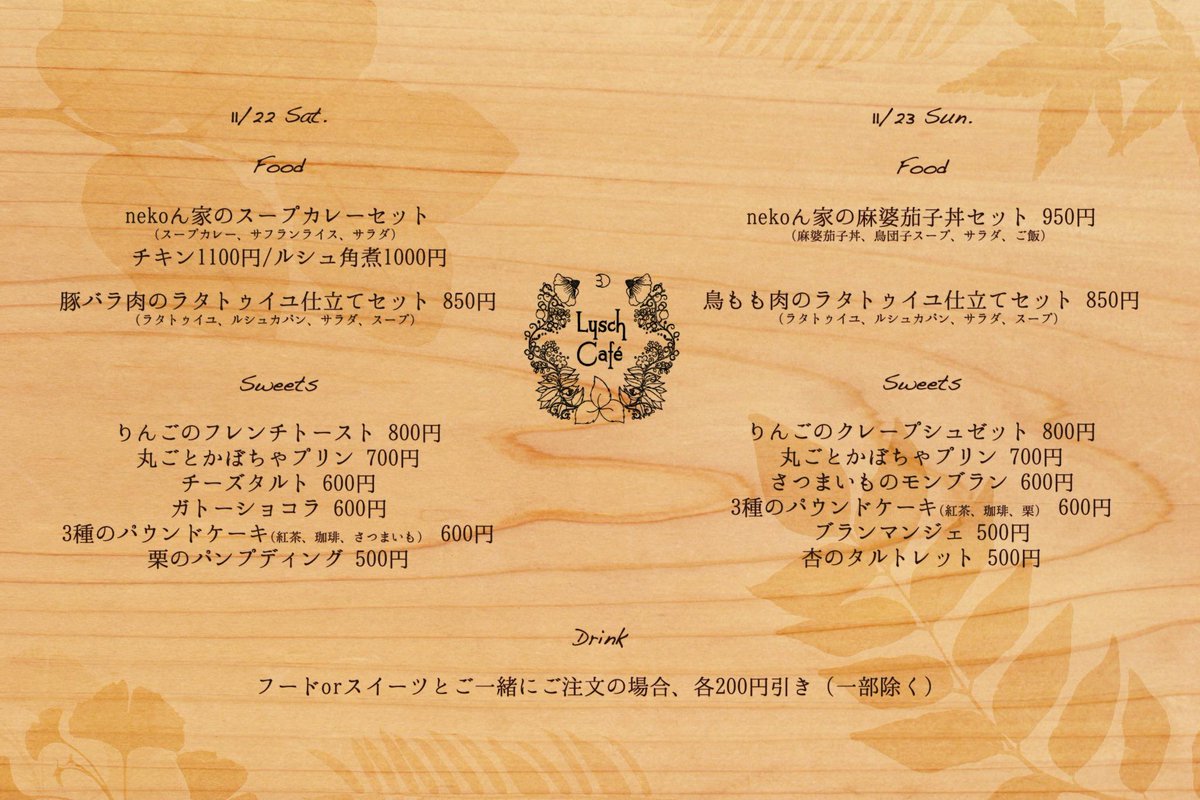 11/22 Sat.
Food
nekoん家のスープカレーセット
(スープカレー、サフランライス、サラダ)
チキン1100円/ルシュ角煮1000円
豚バラ肉のラタトゥイユ仕立てセット 850円
(ラタトゥイユ、ルシュカパン、サラダ、スープ)
Sweets
りんごのフレンチトースト 800円
丸ごとかぼちゃプリン 700円
チーズタルト 600円
ガトーショコラ 600円
3種のパウンドケーキ(紅茶、珈琲、さつまいも) 600円
栗のパンプディング 500円
Lysch
Café
11/23 Sun.
Food
nekoん家の麻婆茄子丼セット 950円
(麻婆茄子丼、鳥団子スープ、サラダ、ご飯)
鳥もも肉のラタトゥイユ仕立てセット 850円
(ラタトゥイユ、ルシュカパン、サラダ、スープ)
Sweets
りんごのクレープシュゼット 800円
丸ごとかぼちゃプリン 700円
さつまいものモンブラン 600円
3種のパウンドケーキ(紅茶、珈琲、栗) 600円
ブランマンジェ 500円
杏のタルトレット 500円
Drink
フードorスイーツとご一緒にご注文の場合、各200円引き（一部除く）